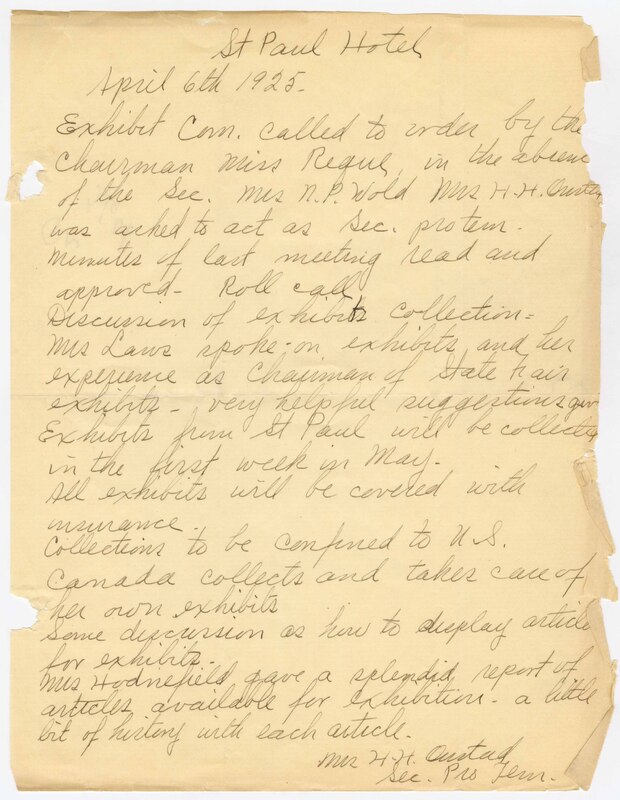 St Paul Hotel
April 6th 1925.
Exhibit Com. called to order by the
Chairman Miss Reque, in the absence
of the Sec. Mrs N.P. Wold Mrs H.H. Oustad
was asked to act as Sec. protem.
Minutes of last meeting read and
approved - Roll call
Discussion of exhibits collection =
Mrs Laws spoke - on exhibits and her
experience as Chairman of State Fair
exhibits - very helpful suggestions given
Exhibits from St Paul will be collected
in the first week in May.
All exhibits will be covered with
insurance.
Collections to be confined to U.S.
Canada collects and takes care of
her own exhibits
Some discussion as how to display article
for exhibits.
Mrs Hodnefield gave a splendid report of
articles available for exhibition - a little
bit of history with each article.
Mrs H.H. Oustad
Sec. Pro Tem.